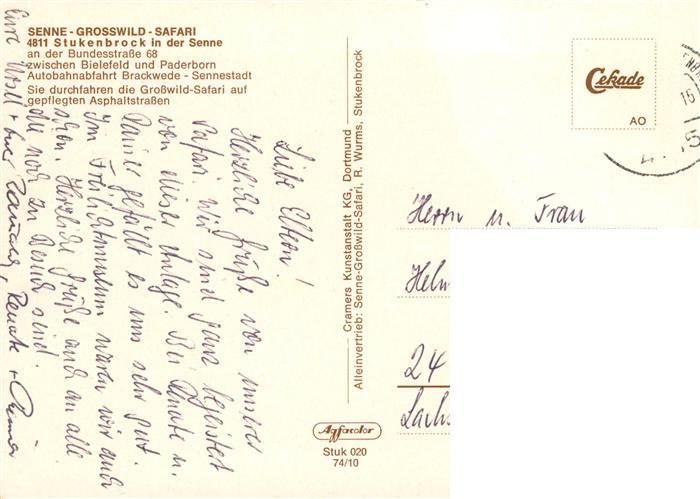 SENNE - GROSSWILD - SAFARI
4811 Stukenbrock in der Senne
an der Bundesstraße 68
zwischen Bielefeld und Paderborn
Autobahnabfahrt Brackwede - Sennestadt
Sie durchfahren die Großwild-Safari auf
gepflegten Asphaltstraßen
Liebe Eltern!
Herzliche Grüße von unserer
Safari. Wir sind ganz begeistert
von dieser Anlage. Bei Renate u.
Rainer gefällt es uns sehr gut.
Im Freilichtmuseum waren wir auch
schon. Herzliche Grüße auch an alle
die noch zu Besuch sind.
Renate + Rainer
Cramers Kunstanstalt KG, Dortmund
Alleinvertrieb: Senne-Großwild-Safari, R. Wurms, Stukenbrock
Cekade
AO
Herrn u. Frau
Helm
24
Lachs
Agfacolor
Stuk 020
74/10